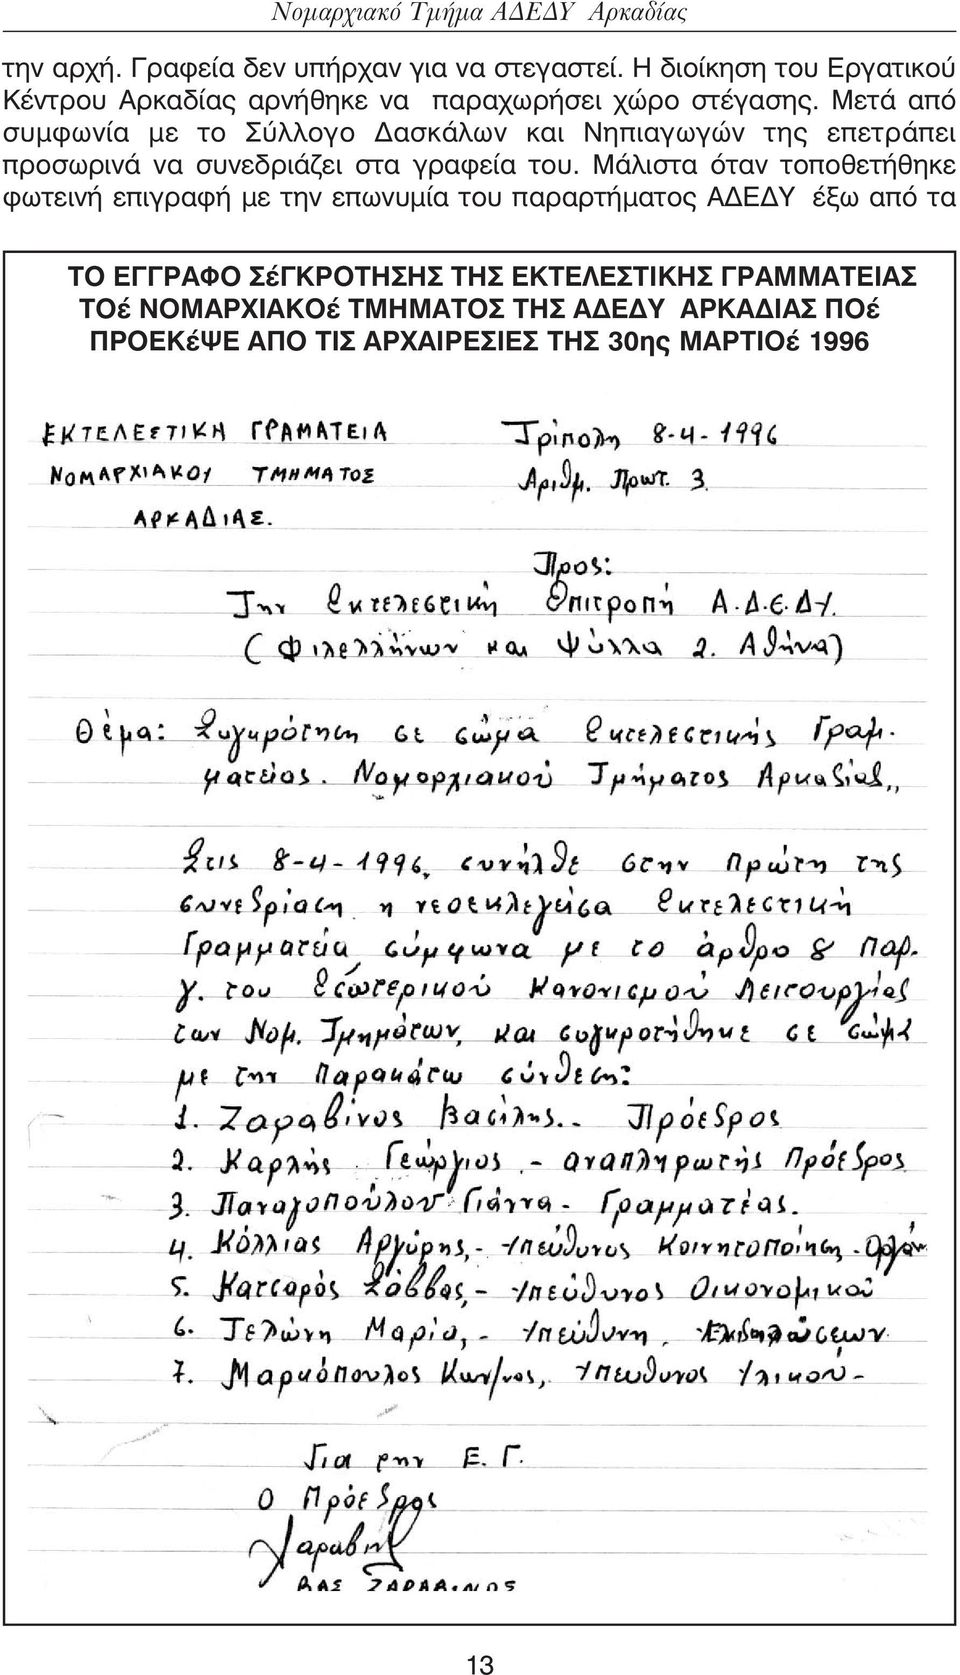 Νομαρχιακό Τμήμα ΑΔΕΔΥ Αρκαδίας
την αρχή. Γραφεία δεν υπήρχαν για να στεγαστεί. Η διοίκηση του Εργατικού
Κέντρου Αρκαδίας αρνήθηκε να παραχωρήσει χώρο στέγασης. Μετά από
συμφωνία με το Σύλλογο Δασκάλων και Νηπιαγωγών της επετράπει
προσωρινά να συνεδριάζει στα γραφεία του. Μάλιστα όταν τοποθετήθηκε
φωτεινή επιγραφή με την επωνυμία του παραρτήματος ΑΔΕΔΥ έξω από τα
ΤΟ ΕΓΓΡΑΦΟ ΣέΓΚΡΟΤΗΣΗΣ ΤΗΣ ΕΚΤΕΛΕΣΤΙΚΗΣ ΓΡΑΜΜΑΤΕΙΑΣ
ΤΟέ ΝΟΜΑΡΧΙΑΚΟέ ΤΜΗΜΑΤΟΣ ΤΗΣ ΑΔΕΔΥ ΑΡΚΑΔΙΑΣ ΠΟέ
ΠΡΟΕΚέΨΕ ΑΠΟ ΤΙΣ ΑΡΧΑΙΡΕΣΙΕΣ ΤΗΣ 30ης ΜΑΡΤΙΟέ 1996
ΕΚΤΕΛΕΣΤΙΚΗ ΓΡΑΜΑΤΕΙΑ Τρίπολη 8-4-1996
ΝΟΜΑΡΧΙΑΚΟΥ ΤΜΗΜΑΤΟΣ Αριθμ. Πρωτ. 3.
ΑΡΚΑΔΙΑΣ.
Προς:
Την Εκτελεστική Επιτροπή Α.Δ.Ε.ΔΥ.
(Φιλελλήνων και Ψύλλα 2. Αθήνα)
Θέμα: Συγκρότηση σε σώμα Εκτελεστικής Γραμ-
ματείας. Νομαρχιακού Τμήματος Αρκαδίας,,
Στις 8-4-1996, συνήλθε στην πρώτη της
συνεδρίαση η νεοεκλεγείσα Εκτελεστική
Γραμματεία, σύμφωνα με το άρθρο 8 παρ.
γ. του Εσωτερικού Κανονισμού Λειτουργίας
των Νομ. Τμημάτων, και συγκροτήθηκε σε σώμα
με την παρακάτω σύνθεση:
1. Ζαραβίνος Βασίλης.. Πρόεδρος
2. Καρλής Γεώργιος.- αναπληρωτής Πρόεδρος
3. Παναγοπούλου Γιάννα- Γραμματέας.
4. Κόλλιας Αργύρης,- Υπεύθυνος Κοινητοποίηση-Οργάν
5. Κατσαρός Σάββας,- Υπεύθυνος Οικονομικού
6. Τελώνη Μαρία,- Υπεύθυνη Εκδηλώσεων
7. Μαρκόπουλος Κων/νος, Υπευθυνος Υλικού-
Για την Ε. Γ.
Ο Πρόεδρος
ΒΑΣ ΖΑΡΑΒΙΝΟΣ
13